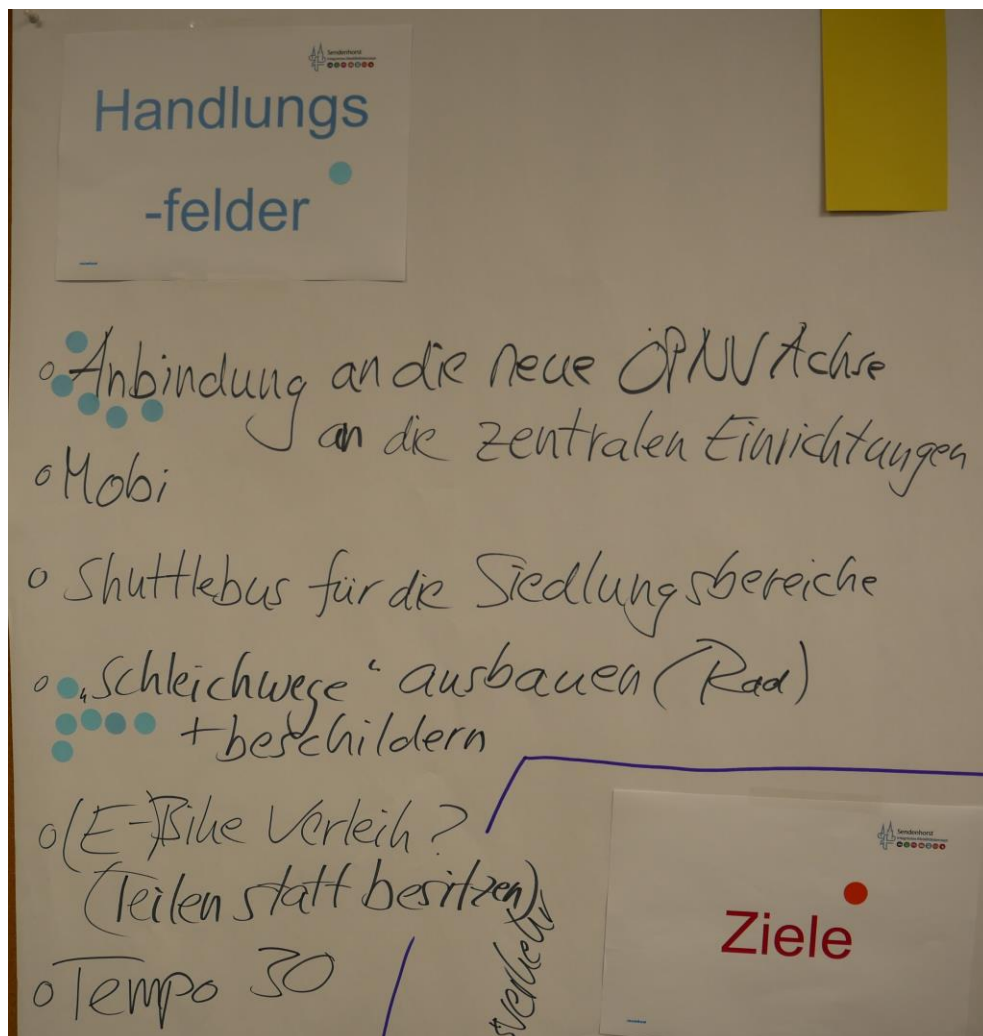 Sendenhorst
Handlungs
-felder
o Anbindung an die neue ÖPNV Achse
an die zentralen Einrichtungen
o Mobi
o Shuttlebus für die Siedlungsbereiche
o „Schleichwege“ ausbauen (Rad)
+ beschildern
o (E-)Bike Verleih?
(Teilen statt besitzen)
o Tempo 30
Sendenhorst
Ziele